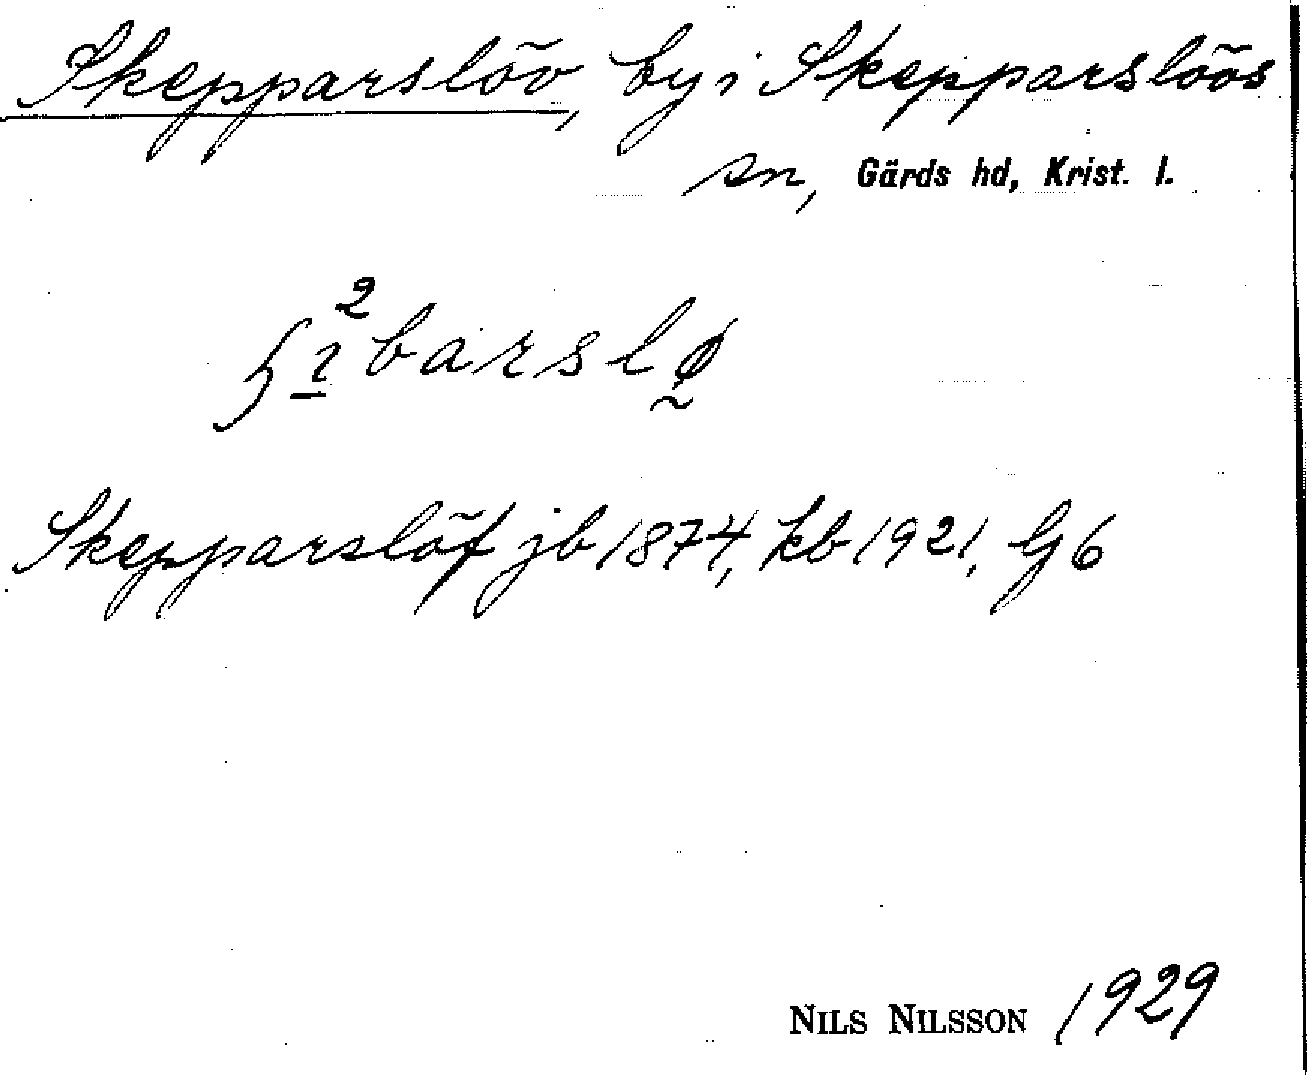 Skepparslöv, by i Skepparslövs
sn, Gärds hd, Krist. l.
Skepparslöf jb 1874, kb 1921, G 6
NILS NILSSON 1929